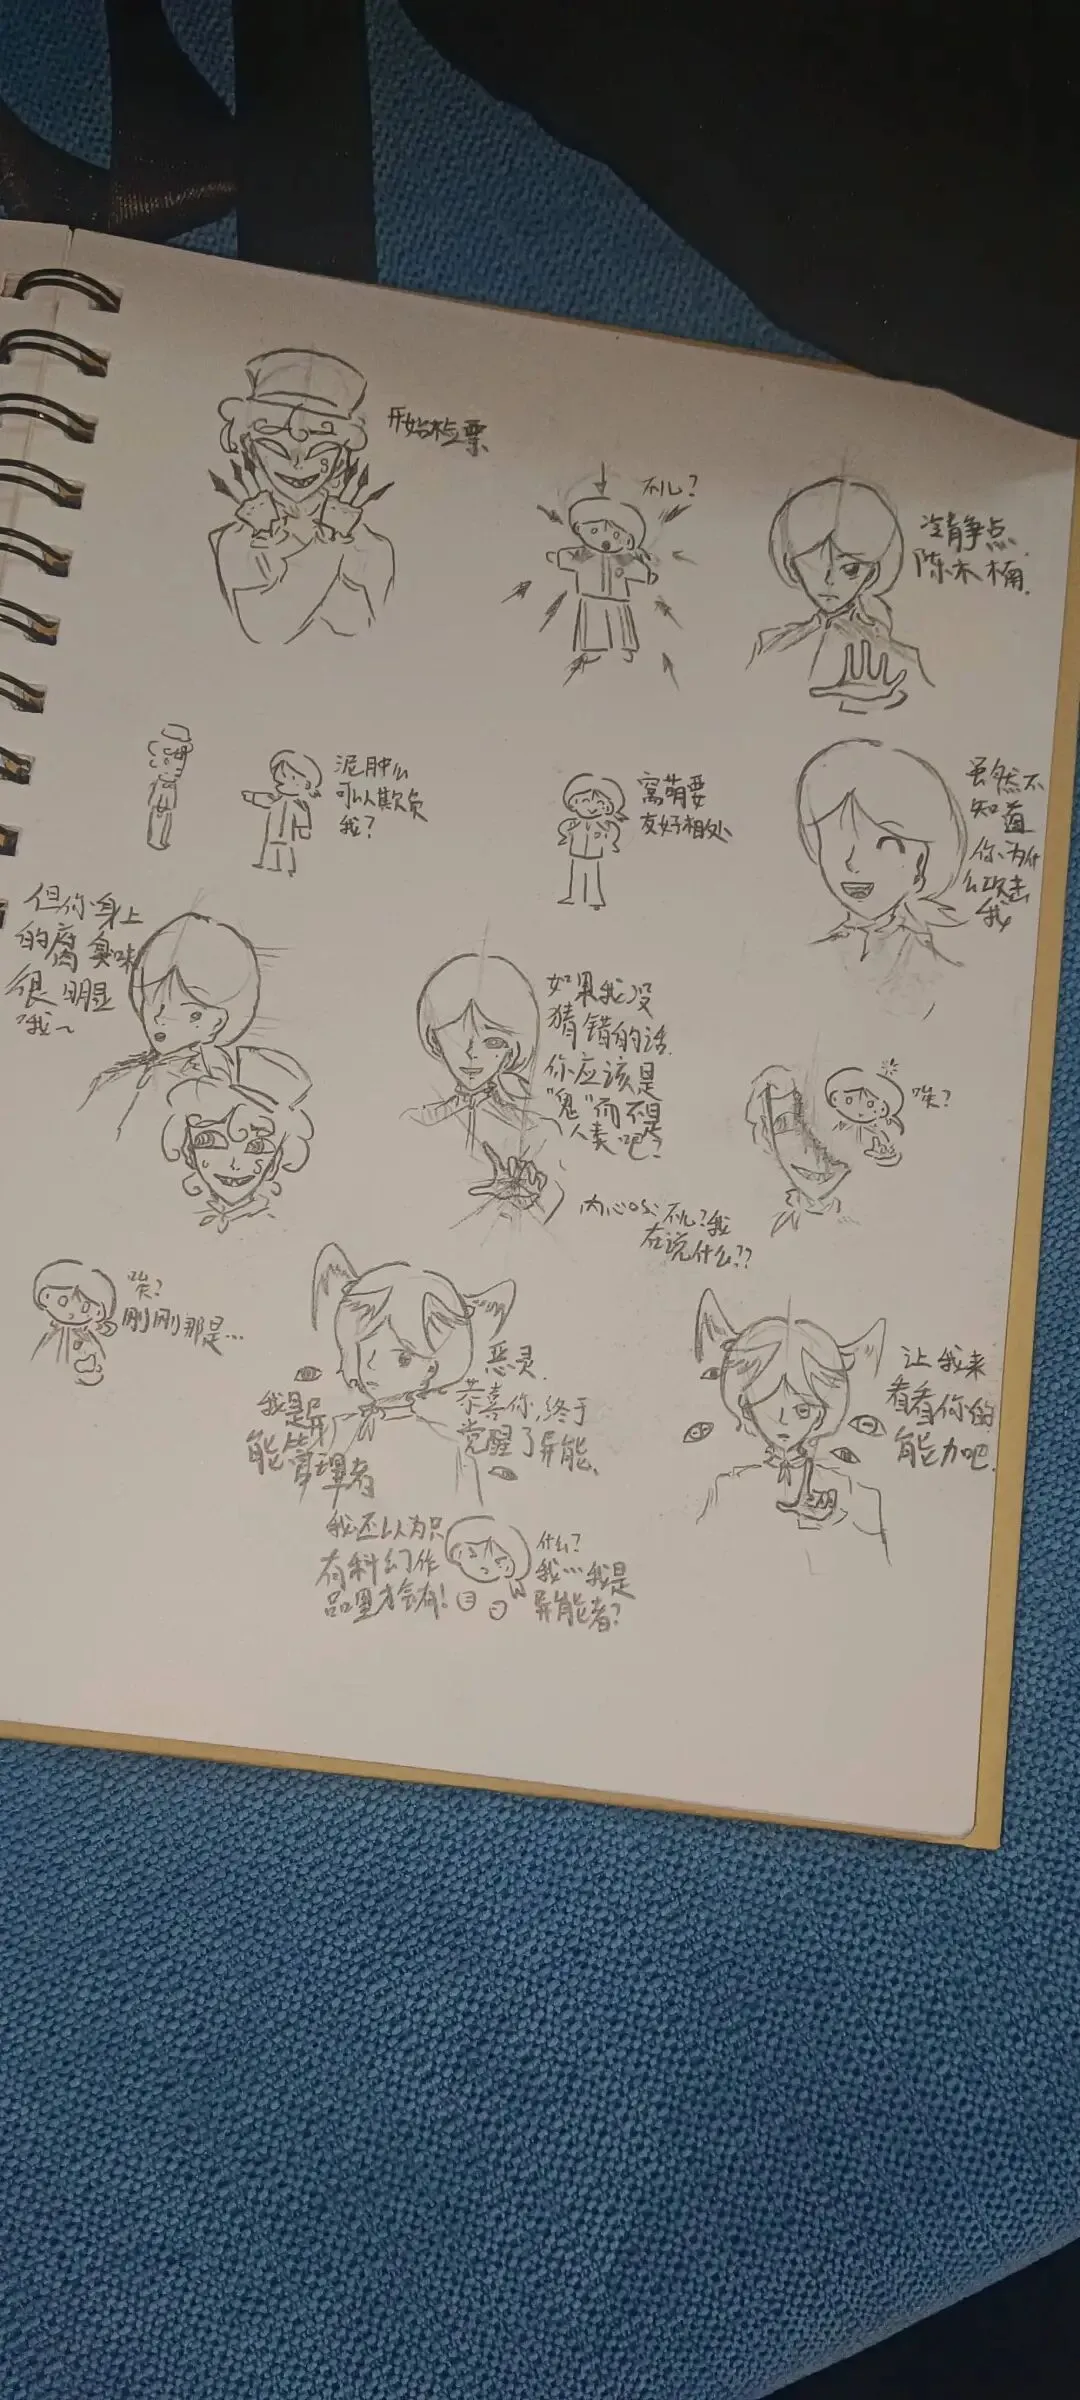 开始检票
不儿?
冷静点
陈木桶.
泥肿么
可以欺负
我?
窝萌要
友好相处
虽然不
知道
你为什
么攻击
我
但你身上
的腐臭味
很明显
哦~
如果我没
猜错的话.
你应该是
"鬼"而不是
人类吧?
唉?
内心os: 不儿?我
在说什么??
唉?
刚刚那是…
恶灵.
恭喜你,终于
觉醒了异能.
我是异
能管理者
让我来
看看你的
能力吧.
我还以为只
有科幻作
品里才会有!
什么?
我…我是
异能者?